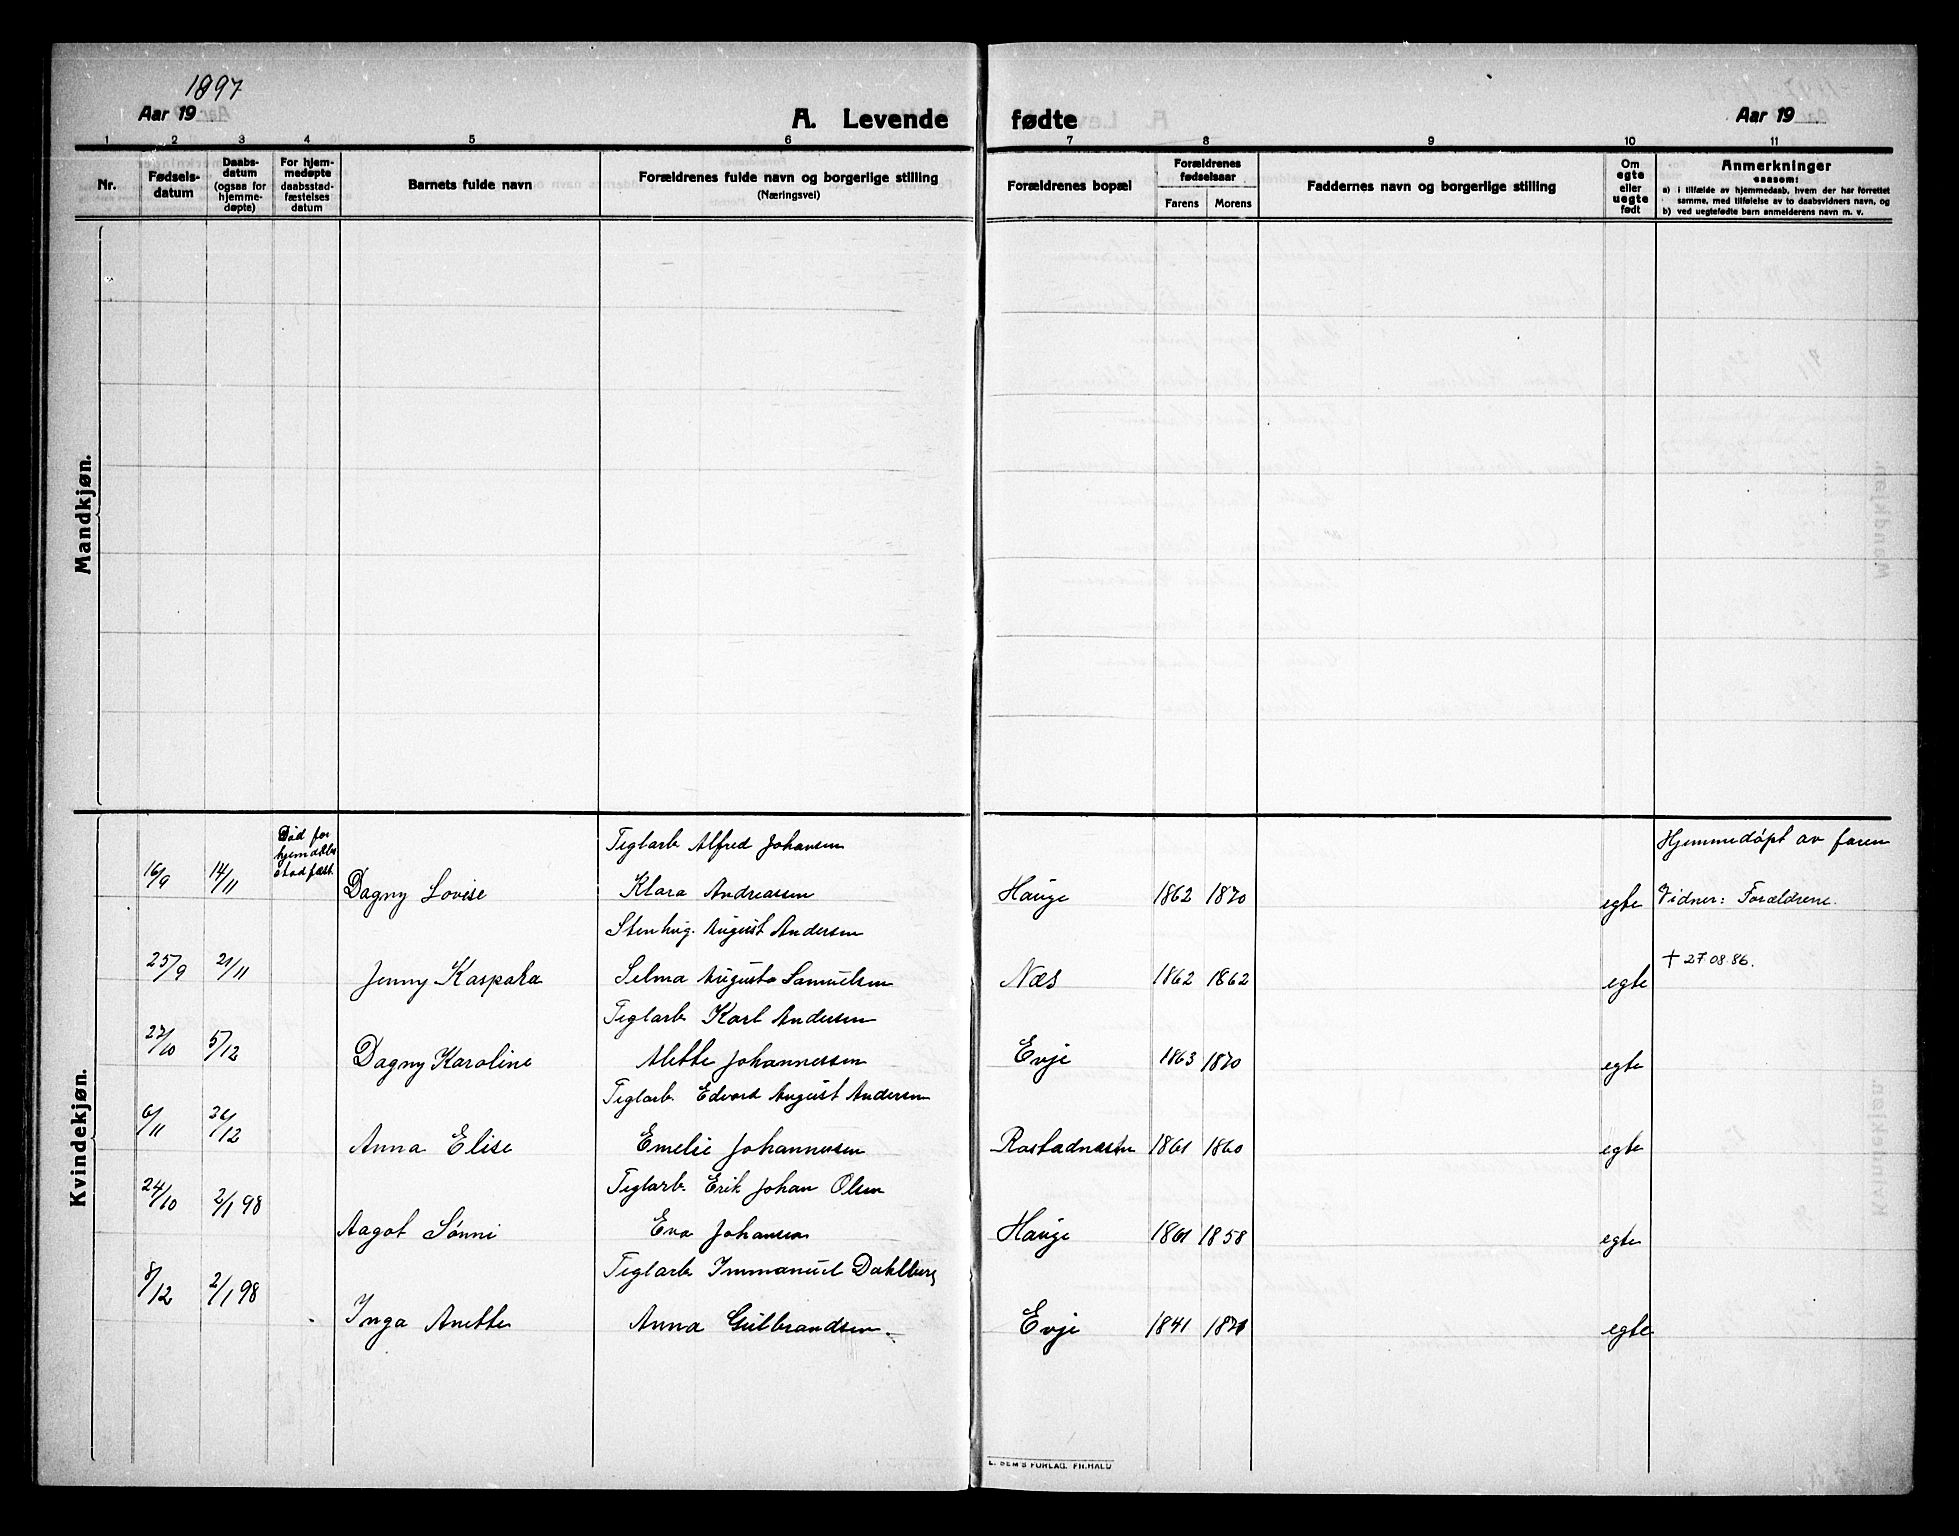 1897
Aar 19
A. Levende fødte
Aar 19
1 2 3 4 5 6 7 8 9 10 11
Nr.
Fødsels-
datum
Daabs-
datum
(ogsaa for
hjemme-
døpte)
For hjem-
medøpte
daabsstad-
fæstelses
datum
Barnets fulde navn
Forældrenes fulde navn og borgerlige stilling
(Næringsvei)
Forældrenes bopæl
Forældrenes
fødselsaar
Farens Morens
Faddernes navn og borgerlige stilling
Om
egte
eller
uegte
født
Anmerkninger
saasom:
a) i tilfælde av hjemmedaab, hvem der har forrettet
samme, med tilføielse av to daabsvidners navn, og
b) ved uegtefødte barn anmelderens navn m. v.
Mandkjøn.
Kvindekjøn.
Død for
hjemdaabs
stadfæst.
Teglarb Alfred Johansen
Hjemmedøpt av faren
16/9 14/11 Dagny Lovise Klara Andreassen Hauge 1862 1870 egte Vidner: Forældrene.
Stenhug. August Andersen
25/9 21/11 Jenny Kaspara Selma Augusta Samuelsen Næs 1862 1862 egte † 27 08 86.
Teglarb Karl Andersen
27/10 5/12 Dagny Karoline Alette Johannessen Evje 1863 1870 egte
Teglarb. Edvard August Andersen
6/11 26/12 Anna Elise Emelie Johannessen 1861 1860 egte
Teglarb. Erik Johan Olsen
24/10 2/1 98 Aagot Sønni Eva Johansen Hauge 1861 1858 egte
Teglarb Immanuel Dahlberg
8/12 2/1 98 Inga Anette Anna Gulbrandsen. Evje 1841 1871 egte
E. SEM'S FORLAG. FR.HALD